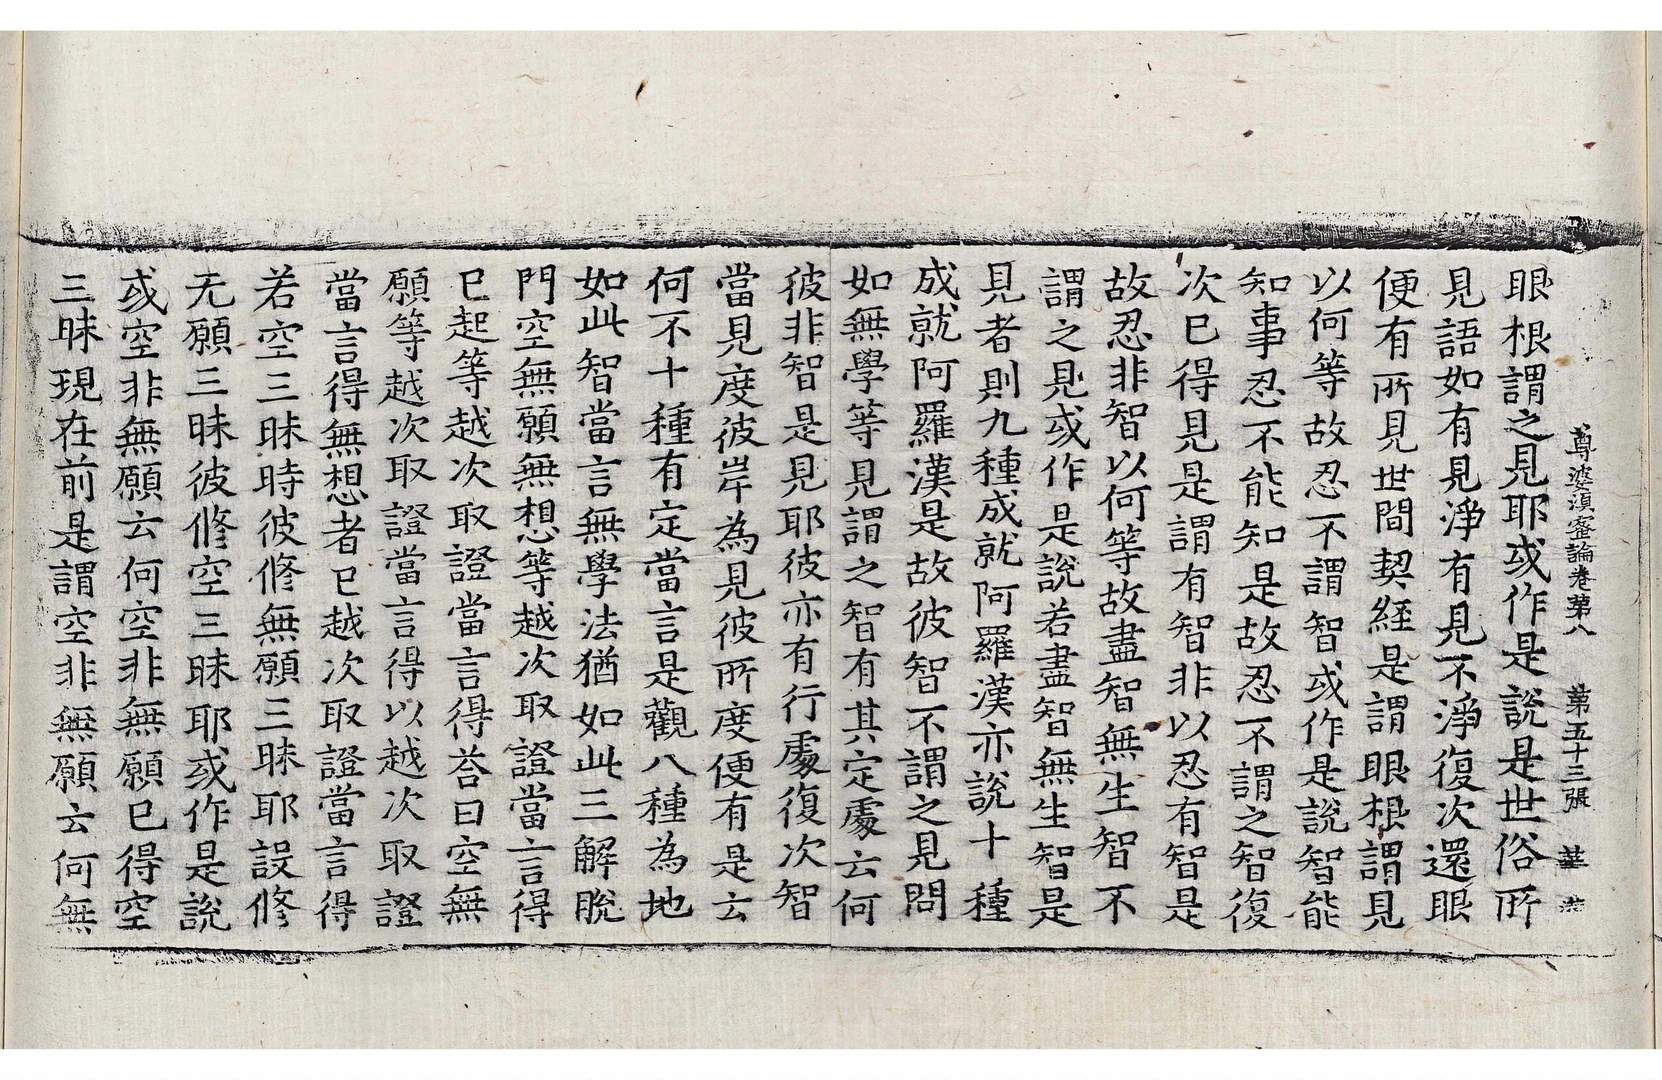 尊婆湏蜜論卷第八　第五十三張　華
眼根謂之見耶或作是說是世俗所
見語如有見淨有見不淨復次還眼
便有所見世間契経是謂眼根謂見
以何等故忍不謂智或作是說智能
知事忍不能知是故忍不謂之智復
次已得見是謂有智非以忍有智是
故忍非智以何等故盡智無生智不
謂之見或作是說若盡智無生智是
見者則九種成就阿羅漢亦說十種
成就阿羅漢是故彼智不謂之見問
如無學等見謂之智有其定處云何
彼非智是見耶彼亦有行處復次智
當見度彼岸為見彼所度便有是云
何不十種有定當言是觀八種為地
如此智當言無學法猶如此三解脫
門空無願無想等越次取證當言得
已起等越次取證當言得荅曰空無
願等越次取證當言得以越次取證
當言得無想者已越次取證當言得
若空三昧時彼修無願三昧耶設修
无願三昧彼修空三昧耶或作是說
或空非無願云何空非無願已得空
三昧現在前是謂空非無願云何無